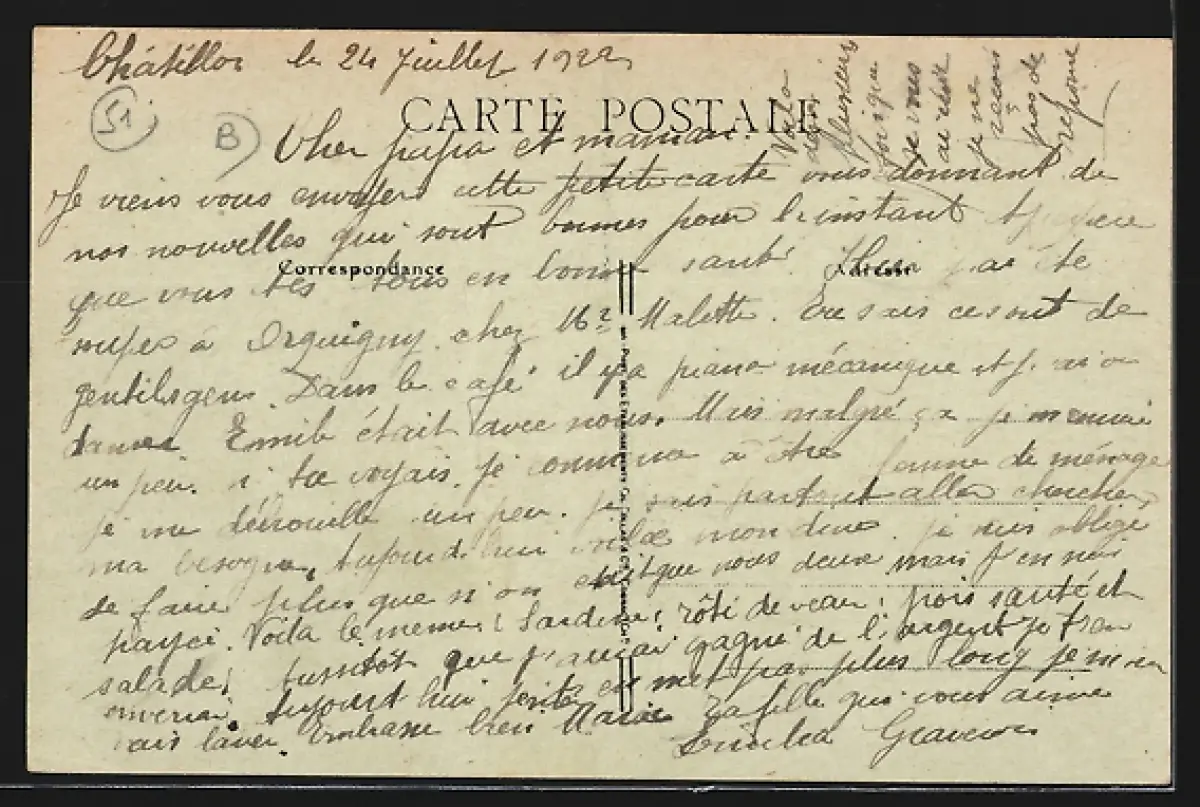 Châtillon le 24 Juillet 1922
51
B
CARTE POSTALE
Cher papa et maman.
Je viens vous envoyer cette petite carte vous donnant de
nos nouvelles qui sont bonnes pour l'instant
que vous êtes tous en bonne santé. Hier j'ai été
Correspondance
Adresse
à Orquigny chez Mr Malette. Tu sais ce sont de
gentils gens. Dans le café il y a piano mécanique et j'ai
danser. Emile était avec nous. Mais malgré ça je m'ennuie
un peu. si tu voyais je commence à être femme de ménage
je me débrouille un peu. je sais partout aller chercher
ma besogne. Aujourd'hui voilà mon diner. je suis obligé
de faire plus que si on était que nous deux mais j'en suis
payée. Voila le menu : Sardine, rôti de veau, pois sauté et
salade. Aussitôt que j'aurai gagné de l'argent je t'en
enverrai. Aujourd'hui je met pas plus long je m'en
vais laver. Embrasse bien Marie Ta fille qui vous aime
Voila
plusieurs
fois que
je vous
au claire
je ne
reçois
pas de
réponse